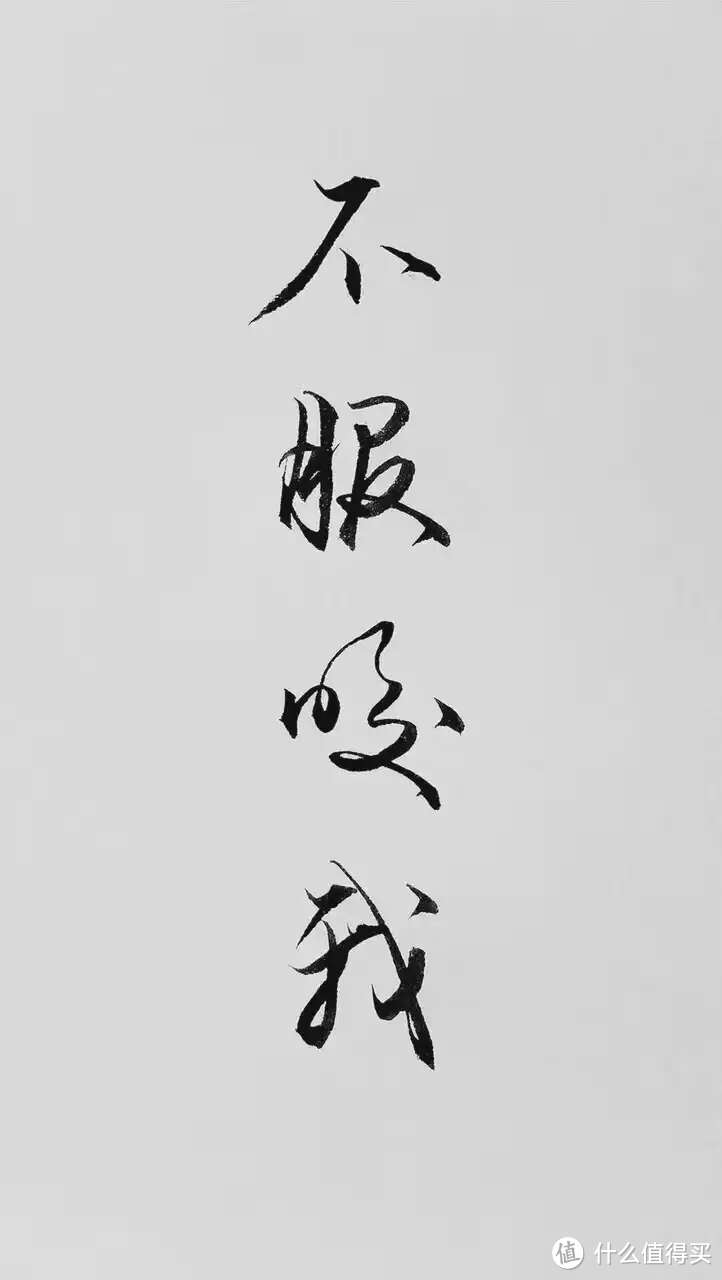 不服咬我
值 什么值得买